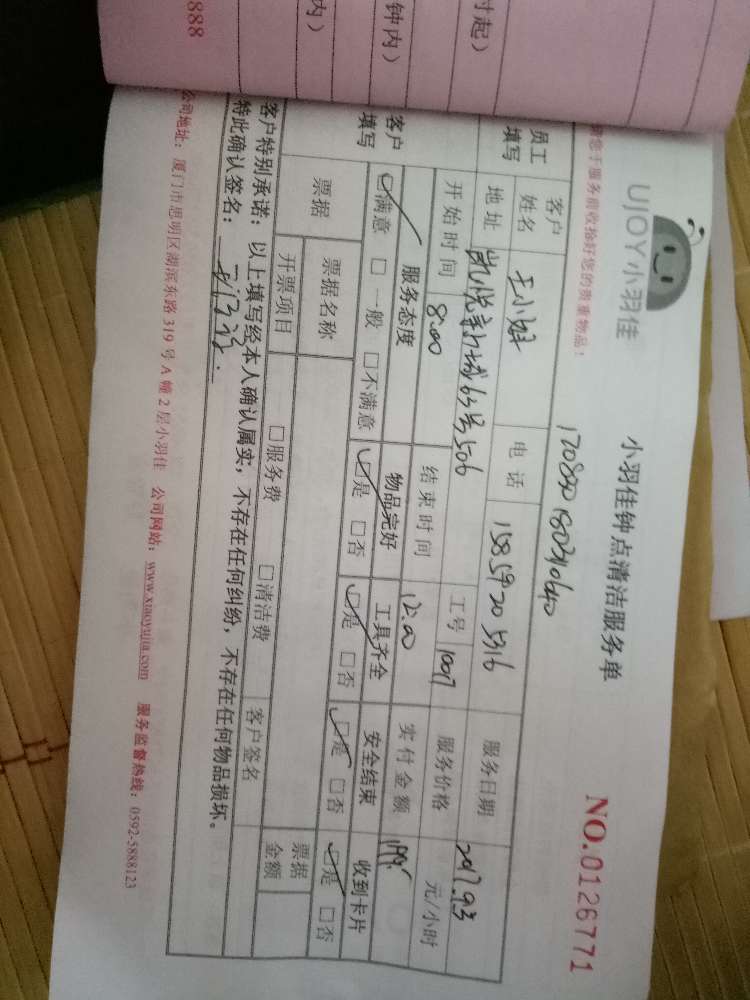 888
时起）
钟内）
内）
UJOY小羽佳
小羽佳钟点清洁服务单
NO.0126771
请您于服务前收拾好您的贵重物品！
170830180310640
员工填写
客户姓名 王小姐 电话 15859205316 服务日期 2017.9.3
地址 凯悦新城63号506 工号 1007 服务价格 元/小时
开始时间 8:00 结束时间 12:00 实付金额
客户填写
服务态度 物品完好 工具齐全 安全结束 收到卡片
☑满意 □一般 □不满意 ☑是 □否 ☑是 □否 ☑是 □否 ☑是 □否
票据 票据名称 票据金额
开票项目 □服务费 □清洁费 客户签名
客户特别承诺：以上填写经本人确认属实，不存在任何纠纷，不存在任何物品损坏。
特此确认签名：
公司地址：厦门市思明区湖滨东路319号A幢2层小羽佳 公司网站：www.xiaoyujia.com 服务监督热线：0592-5888123